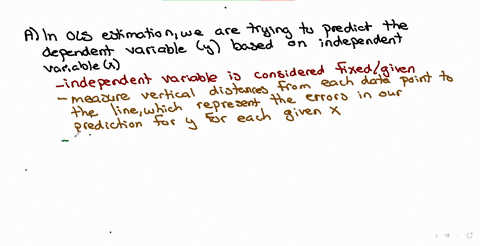 A) In OLS estimation, we are trying to predict the
dependent variable (y) based on independent
variable (x)
- independent variable is considered fixed/given
- measure vertical distances from each data point to
the line, which represent the errors in our
prediction for y for each given x
-